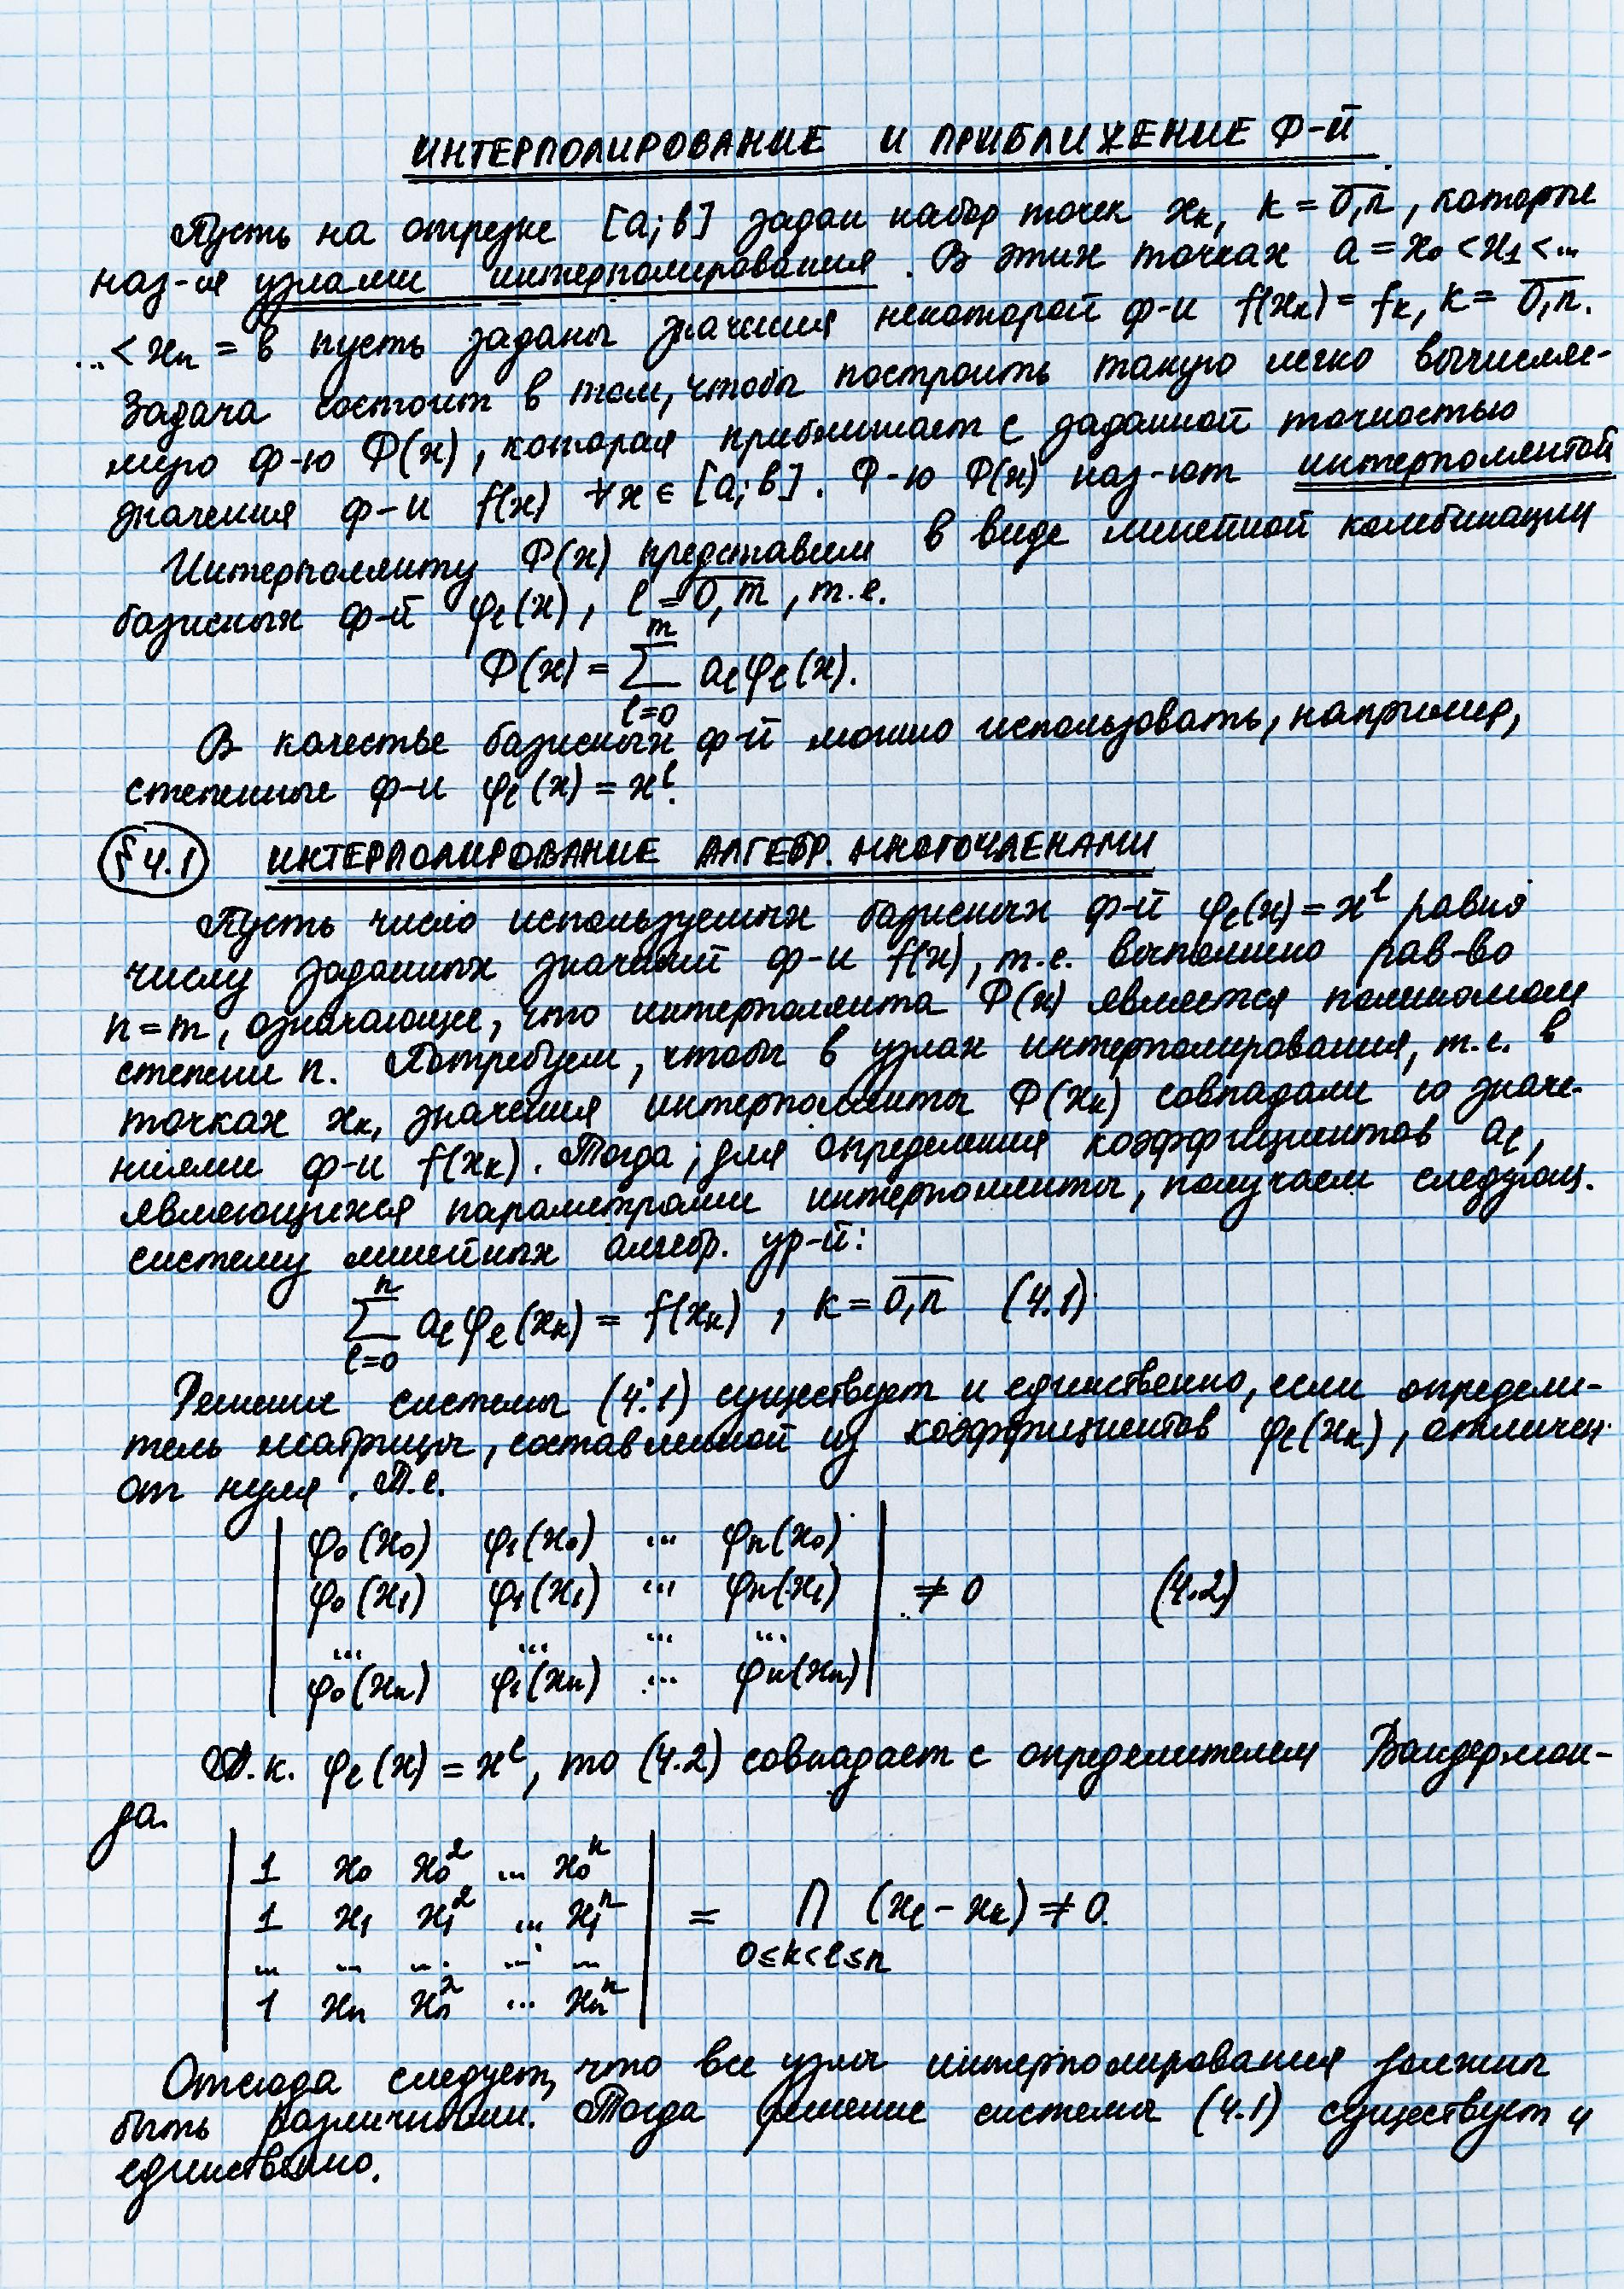 ИНТЕРПОЛИРОВАНИЕ И ПРИБЛИЖЕНИЕ Ф-Й
Пусть на отрезке [a; b] задан набор точек xₖ, k = 0,n̅, которые
наз-ся узлами интерполирования. В этих точках a = x₀ < x₁ < ...
... < xₙ = b пусть заданы значения некоторой ф-и f(xₖ) = fₖ, k = 0,n̅.
Задача состоит в том, чтобы построить такую легко вычисляе-
мую ф-ю Φ(x), которая приближает с заданной точностью
значения ф-и f(x) ∀x ∈ [a; b]. Ф-ю Φ(x) наз-ют интерполянтой
Интерполянту Φ(x) представим в виде линейной комбинации
базисных ф-й φₗ(x), l = 0,m̅, т.е.
Φ(x) = ∑_{l=0}^{m} aₗφₗ(x).
В качестве базисных ф-й можно использовать, например,
степенные ф-и φₗ(x) = xˡ.
§ 4.1 ИНТЕРПОЛИРОВАНИЕ АЛГЕБР. МНОГОЧЛЕНАМИ
Пусть число используемых базисных ф-й φₗ(x) = xˡ равно
числу заданных значений ф-и f(x), т.е. выполнено рав-во
n = m, означающее, что интерполянта Φ(x) является полиномом
степени n. Потребуем, чтобы в узлах интерполирования, т.е. в
точках xₖ, значения интерполянты Φ(xₖ) совпадали со значе-
ниями ф-и f(xₖ). Тогда, для определения коэффициентов aₗ,
являющихся параметрами интерполянты, получаем следующ.
систему линейных алгебр. ур-й:
∑_{l=0}^{n} aₗφₗ(xₖ) = f(xₖ), k = 0,n̅ (4.1)
Решение системы (4.1) существует и единственно, если определи-
тель матрицы, составленной из коэффициентов φₗ(xₖ), отличен
от нуля. Т.е.
| φ₀(x₀) φ₁(x₀) ... φₙ(x₀) |
| φ₀(x₁) φ₁(x₁) ... φₙ(x₁) | ≠ 0 (4.2)
| ... ... ... ... |
| φ₀(xₙ) φ₁(xₙ) ... φₙ(xₙ) |
Т.к. φₗ(x) = xˡ, то (4.2) совпадает с определителем Вандермон-
да.
| 1 x₀ x₀² ... x₀ⁿ |
| 1 x₁ x₁² ... x₁ⁿ | = ∏_{0≤k<l≤n} (xₗ - xₖ) ≠ 0.
| ... ... ... ... ... |
| 1 xₙ xₙ² ... xₙⁿ |
Отсюда следует, что все узлы интерполирования должны
быть различными. Тогда решение системы (4.1) существует и
единственно.